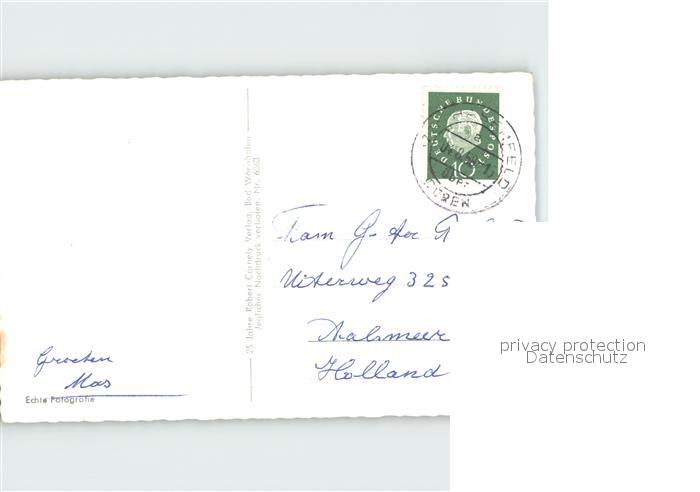 DEUTSCHE BUNDESPOST
10
DÜREN
25 Jahre Robert Cornely Verlag, Bad Wörishofen
Jeglicher Nachdruck verboten. Nr. 6063
Fam G.
Uiterweg 325
Aalsmeer
Holland
Groeten
Mas
Echte Fotografie
privacy protection
Datenschutz